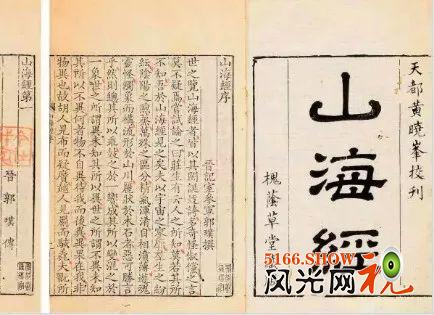 天都黃曉峯校刊
山海經
槐蔭草堂
山海經序
晉記室參軍郭璞撰
世之覽山海經者皆以其閎誕迂誇多奇怪俶儻之言
莫不疑焉嘗試論之曰莊生有云人之所知莫若其所
不知吾於山海經見之矣夫以宇宙之寥廓羣生之紛
紜陰陽之煦蒸萬殊之區分精氣渾淆自相濆薄遊魂
靈怪觸象而構流形於山川麗狀於木石者惡可勝言
乎然則總其所以乖鼓之於一響成其所以變混之於
一象世之所謂異未知其所以異世之所謂不異未知
其所以不異何者物不自異待我而後異異果在我非
物異也故胡人見布而疑黂越人見罽而駭毳夫翫所
山海經第一
晉郭璞傳
5166.SHOW
风光网视